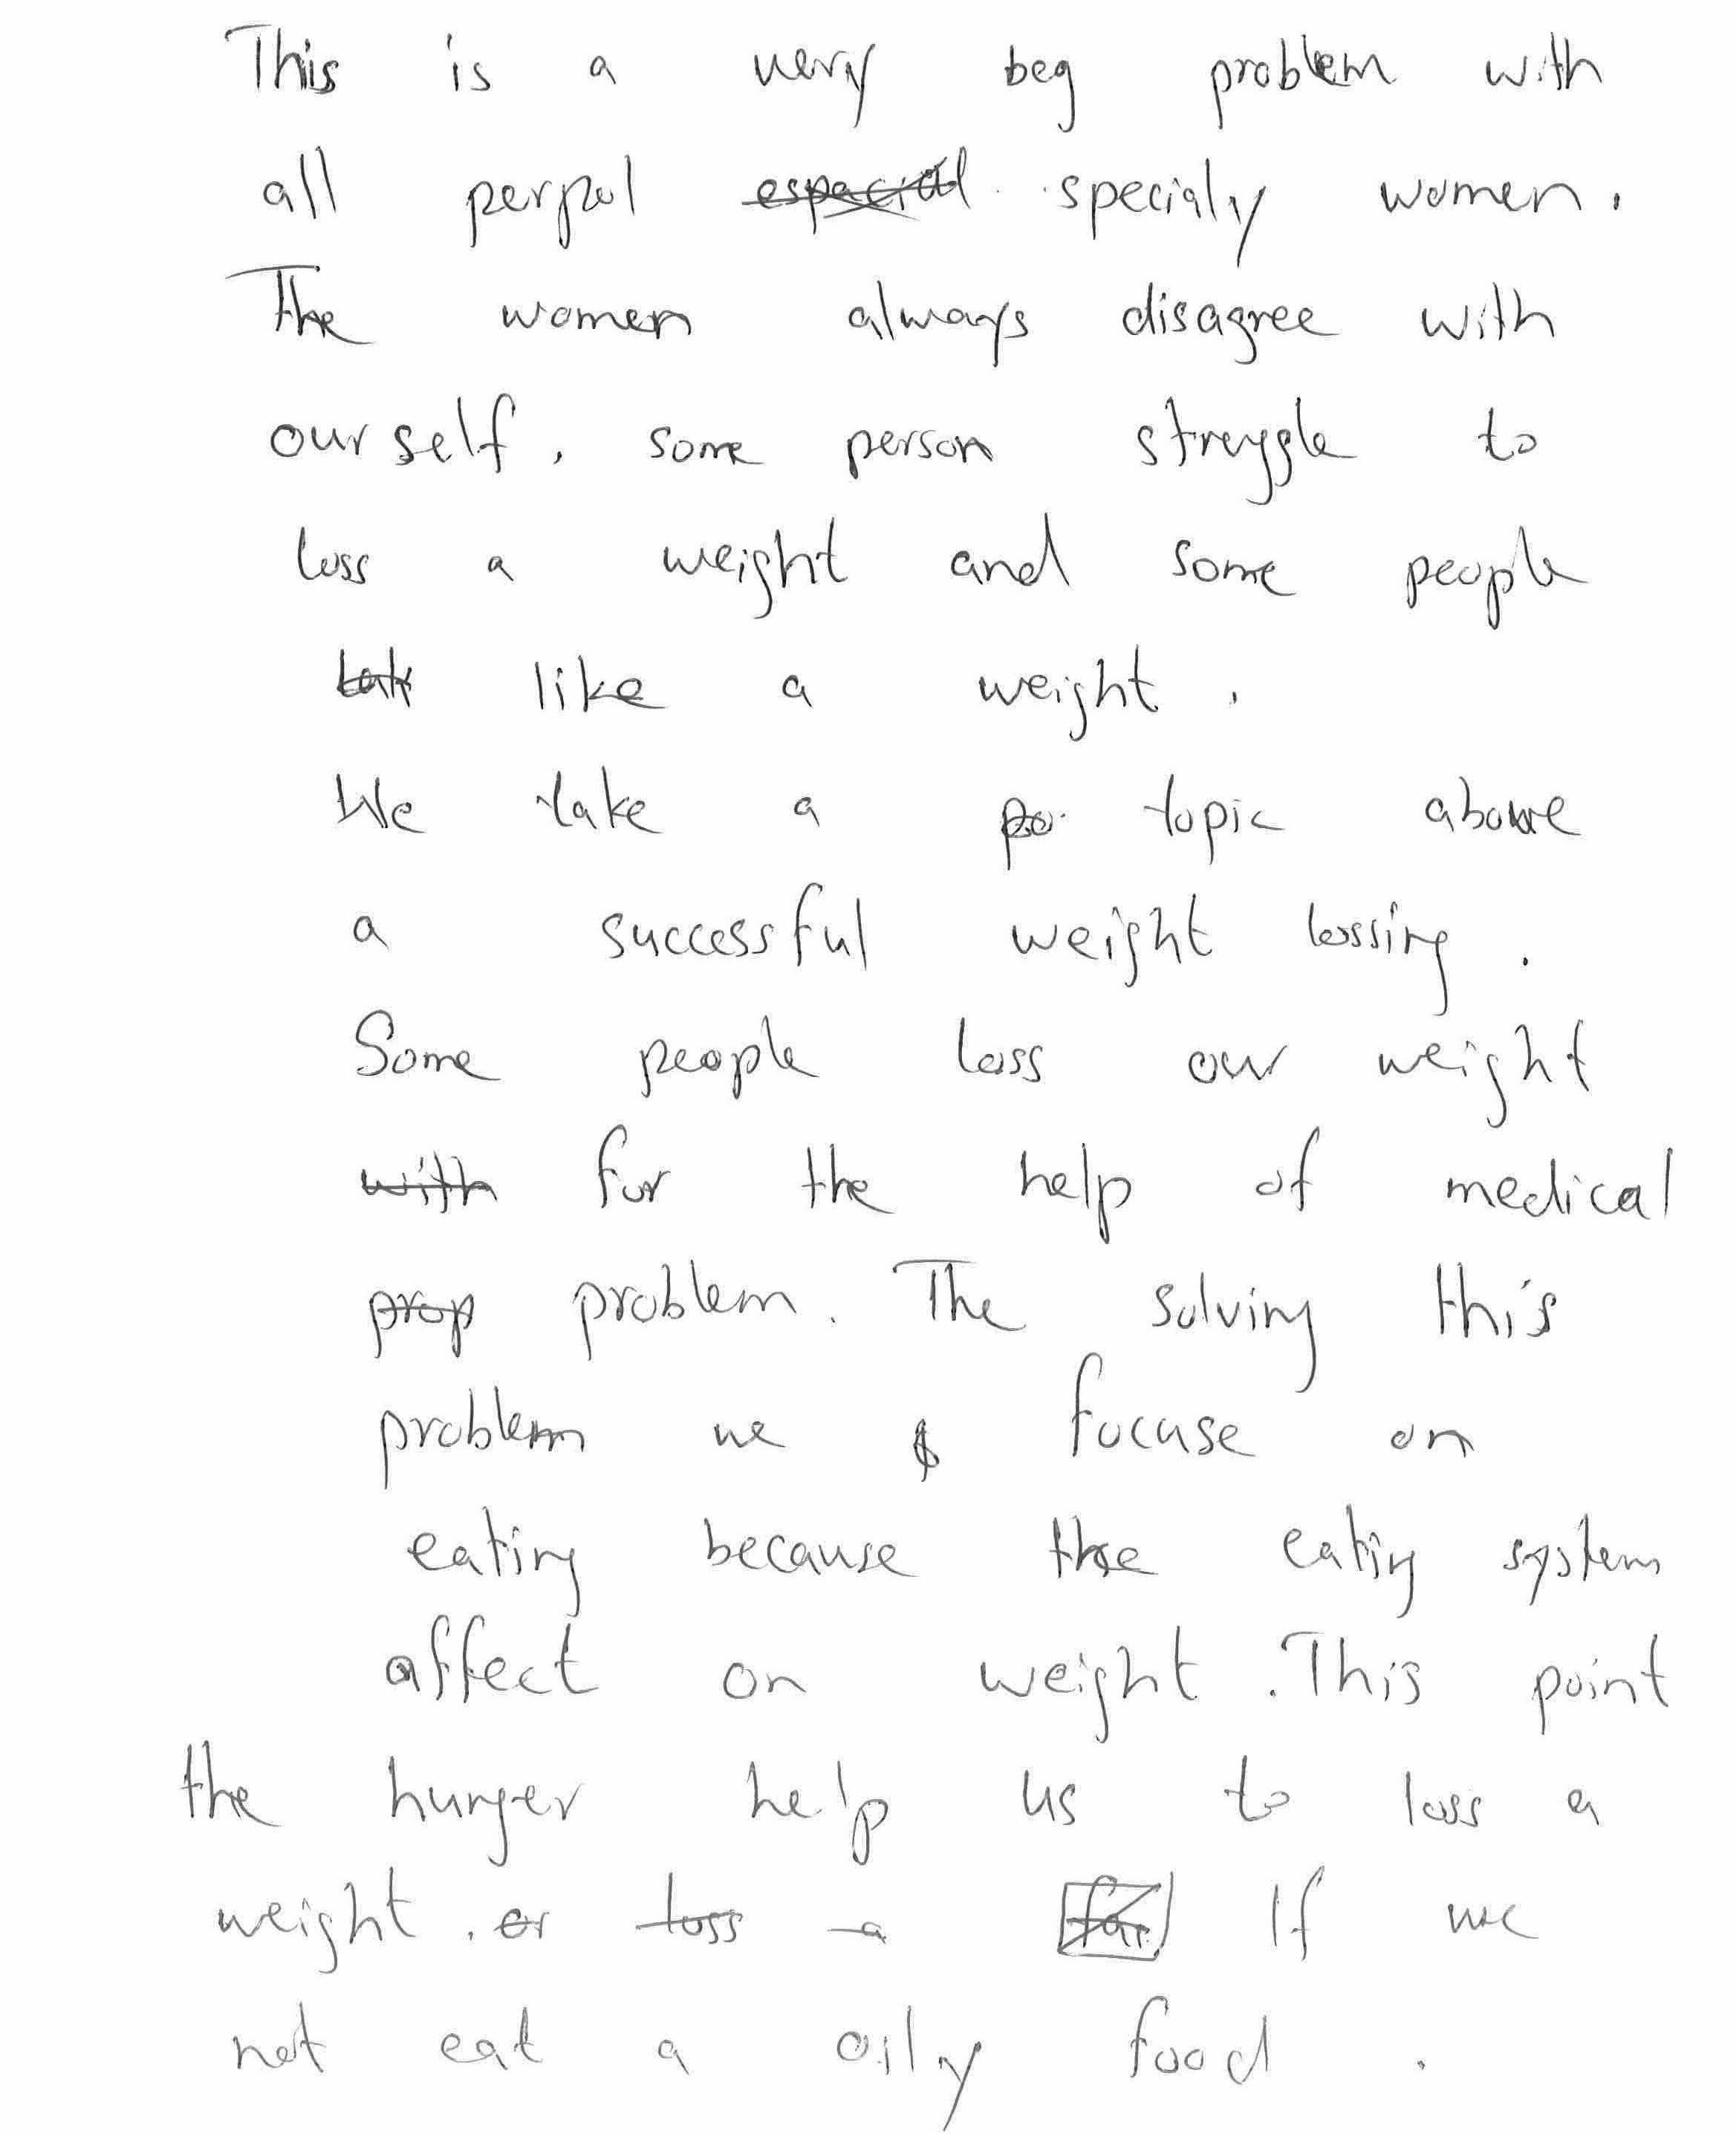 This is a very beg problem with
all perpol specialy women.
The women always disagree with
ourself. some person struggle to
loss a weight and some people
like a weight.
We take a topic above
a successful weight lossing.
Some people loss our weight
for the help of medical
problem. The solving this
problem we focuse on
eating because the eating system
affect on weight. This point
the hunger help us to loss a
weight. If we
not eat a oily food.